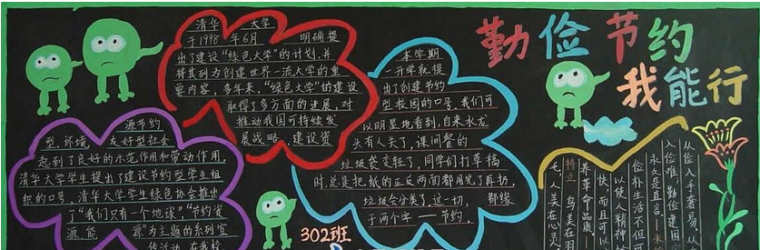 勤俭节约
我能行
清华 大学
于1998 年6月 明确提
出了建设"绿色大学"的计划,并
将其列为创建世界一流大学的重
要内容，多年来，"绿色大学"的建设
取得了多方面的进展，对
推动我国可持续发
展战略、建设资
源节约
型、环境 友好型社会
起到了良好的示范作用和带动作用，
清华大学学生提出了建设节约型学生组
织的口号，清华大学学生绿色协会推出
了"我们只有一个地球""节约资
源 能 为主题的系列宣
本学期
一开学就提
出了创建节约
型校园的口号，我们可
以明显地看到，自来水龙
头有人关了，课间餐的
垃圾袋变轻了，同学们打草稿
时，总是把纸的正反两面都用完了再扔，
垃圾会分类了，这一切， 都缘
于两个字——节约。
302班
从俭入奢易，从
入俭难，勤俭建国
永久是真言。
俭朴生活，不但可
以使人精神
快，而且可以
养革命品质
特立
鸟美在羽
毛，人美在心灵